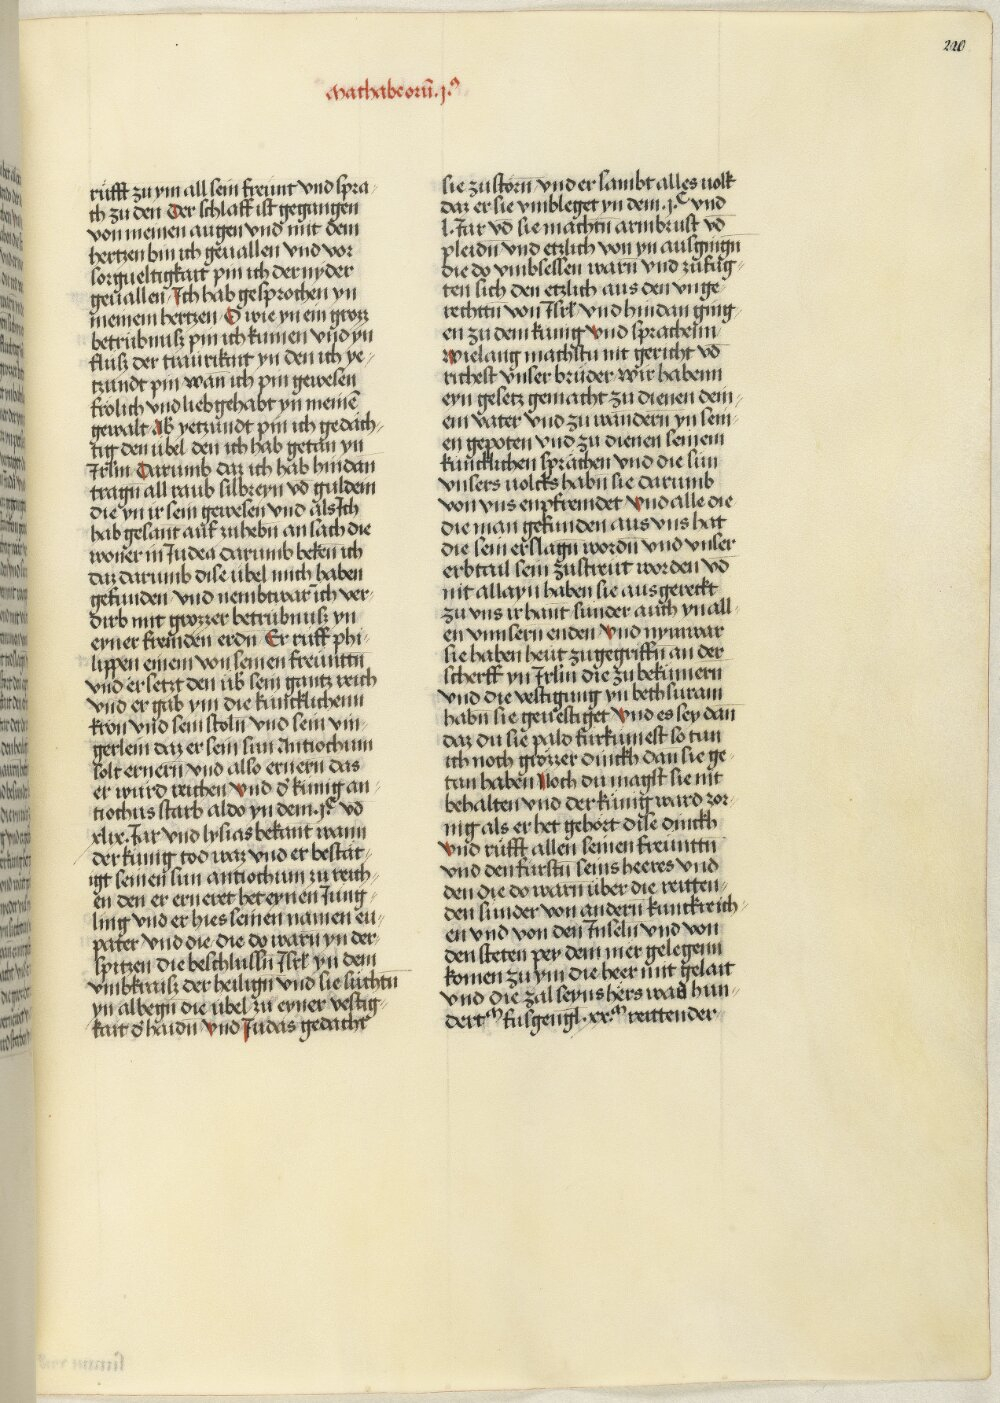 220
Mathabeorū .j.º
rüfft zu ym all sein freünt vnd spra-
ch zu den Der schlaff ist gegangen
von meinen augen vnd mit dem
hertzen bin ich geuallen vnd vor
sorgueltigkait pin ich der nyder
geuallen Ich hab gesprochen yn
meinem hertzen O wie yn ein grozz
betrübnusz pin ich kumen vnd yn
flusz der traurikait yn den ich ye-
tzundt pin wan ich pin gewesen
frölich vnd lieb gehabt yn meinē
gewalt Ab yetzundt pin ich gedäch-
tig den übel den ich hab getan yn
Irslm Darumb daz ich hab hindan
tragn all raub silbreyn vd guldem
die yn ir sein gewesen vnd als Ich
hab gesant auf zuhebn an sach die
woner in Iudea darumb beken ich
daz darumb dise übel mich haben
gefunden vnd nembtwar ich ver-
dirb mit grozzer betrübnusz yn
eyner fremden erdn Er rüff phi-
lippen einem von seinen freünttn
vnd er setzt den üb sein gantz reich
vnd er gab ym die künicklichenn
kron vnd sein stoln vnd sein vin-
gerlem daz er sein sun Antiochum
solt ernern vnd also ernern das
er würd reichen vnd d' künig an-
tiochus starb aldo yn dem .jC vd
xlix. Iar vnd lysias bekant wann
der künig tod waz vnd er bestät-
igt seinen sun antiochum zu reich-
en den er erneret het eynen Iung-
ling vnd er hies seinen namen eu-
pater vnd die die do warn yn der
spitzen die beschlussn Isrl yn dem
vmbkraisz der heilign vnd sie süchtn
yn albegn die übel zu eyner vestig-
kait d' haidn vnd Iudas gedacht
sie zustörn vnd er sambt alles uolk
daz er sie vmbleget yn dem .jC vnd
l. Iar vd sie machtn armbrust vd
pleidn vnd etzlich von yn ausgingn
die do vmbsessen warn vnd züfüg-
ten sich den etzlich aus den vnge-
rechttn von Isrl vnd hindan ging-
en zu dem künig vnd sprachenn
wielang machstu nit gericht vd
richest vnser brüder wir habenn
eyn gesetz gemacht zu dienen dein-
em vater vnd zu wandern yn sein-
en gepoten vnd zu dienen seinem
künicklichen sprachen vnd die sün
vnsers uolcks habn sie darumb
von vns enpfremdet vnd alle die
die man gefunden aus vns hat
die sein erslagn wordn vnd vnser
erbtail sein zustreut worden vd
nit allayn haben sie ausgereckt
zu vns ir hant sunder auch yn all-
en vnnsern enden vnd nymwar
sie haben heut zugegriffn an der
scherff yn Irslm die zu bekümern
vnd die vestigung yn bethsuram
habn sie geuestiget vnd es sey dan
daz du sie pald fürkumest so tun
ich noch grözzer dinckh dan sie ge-
tan haben Noch du magst sie nit
behalten vnd der künig ward zor-
nig als er het gehört dise dinckh
vnd rüfft allen seinen freünttn
vnd den fürstn seins heeres vnd
den die do warn über die reitten-
den sunder von andern künickreich-
en vnd von den Inseln vnd von
den steten per dem mer gelegenn
komen zu ym die heer mit gelait
vnd die zal seyns hers waz hun-
dertM fusgengl .xx.M reittender